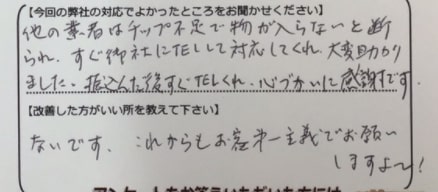 【今回の弊社の対応でよかったところをお聞かせください】
他の業者はチップ不足で物が入らないと断
られ、すぐ御社にTELして対応してくれ、大変助かり
ました。振込んだ後すぐTELくれ、心づかいに感謝です。
【改善した方がいい所を教えて下さい】
ないです。これからもお客第一主義でお願い
しますよ〜!
アンケートをお答えいただいた方には